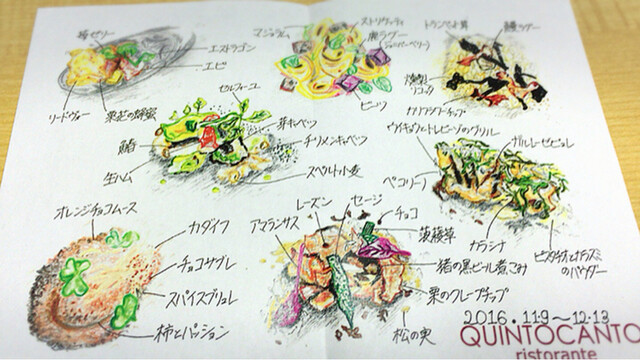 エストラゴン
エビ
リードヴォー
栗芝の蜂蜜
マジョラム
ストリゴッティ
鹿ラグー
(ジュニパーベリー)
ビーツ
鰻ラグー
燻製リコッタ
カリフラワーチップ
セルフィーユ
芽キャベツ
チリメンキャベツ
スペルト小麦
鰆
生ハム
ウイキョウとトレビーゾのグリル
ペコリーノ
カラシナ
ピスタチオとカラスミ
のパウダー
オレンジチョコムース
カダイフ
チョコサブレ
スパイスブリュレ
柿とパッション
アマランサス
レーズン
セージ
チョコ
菠薐草
猪の黒ビール煮こみ
栗のクレープチップ
松の実
2016.11.9〜12.13
QUINTOCANTO
ristorante